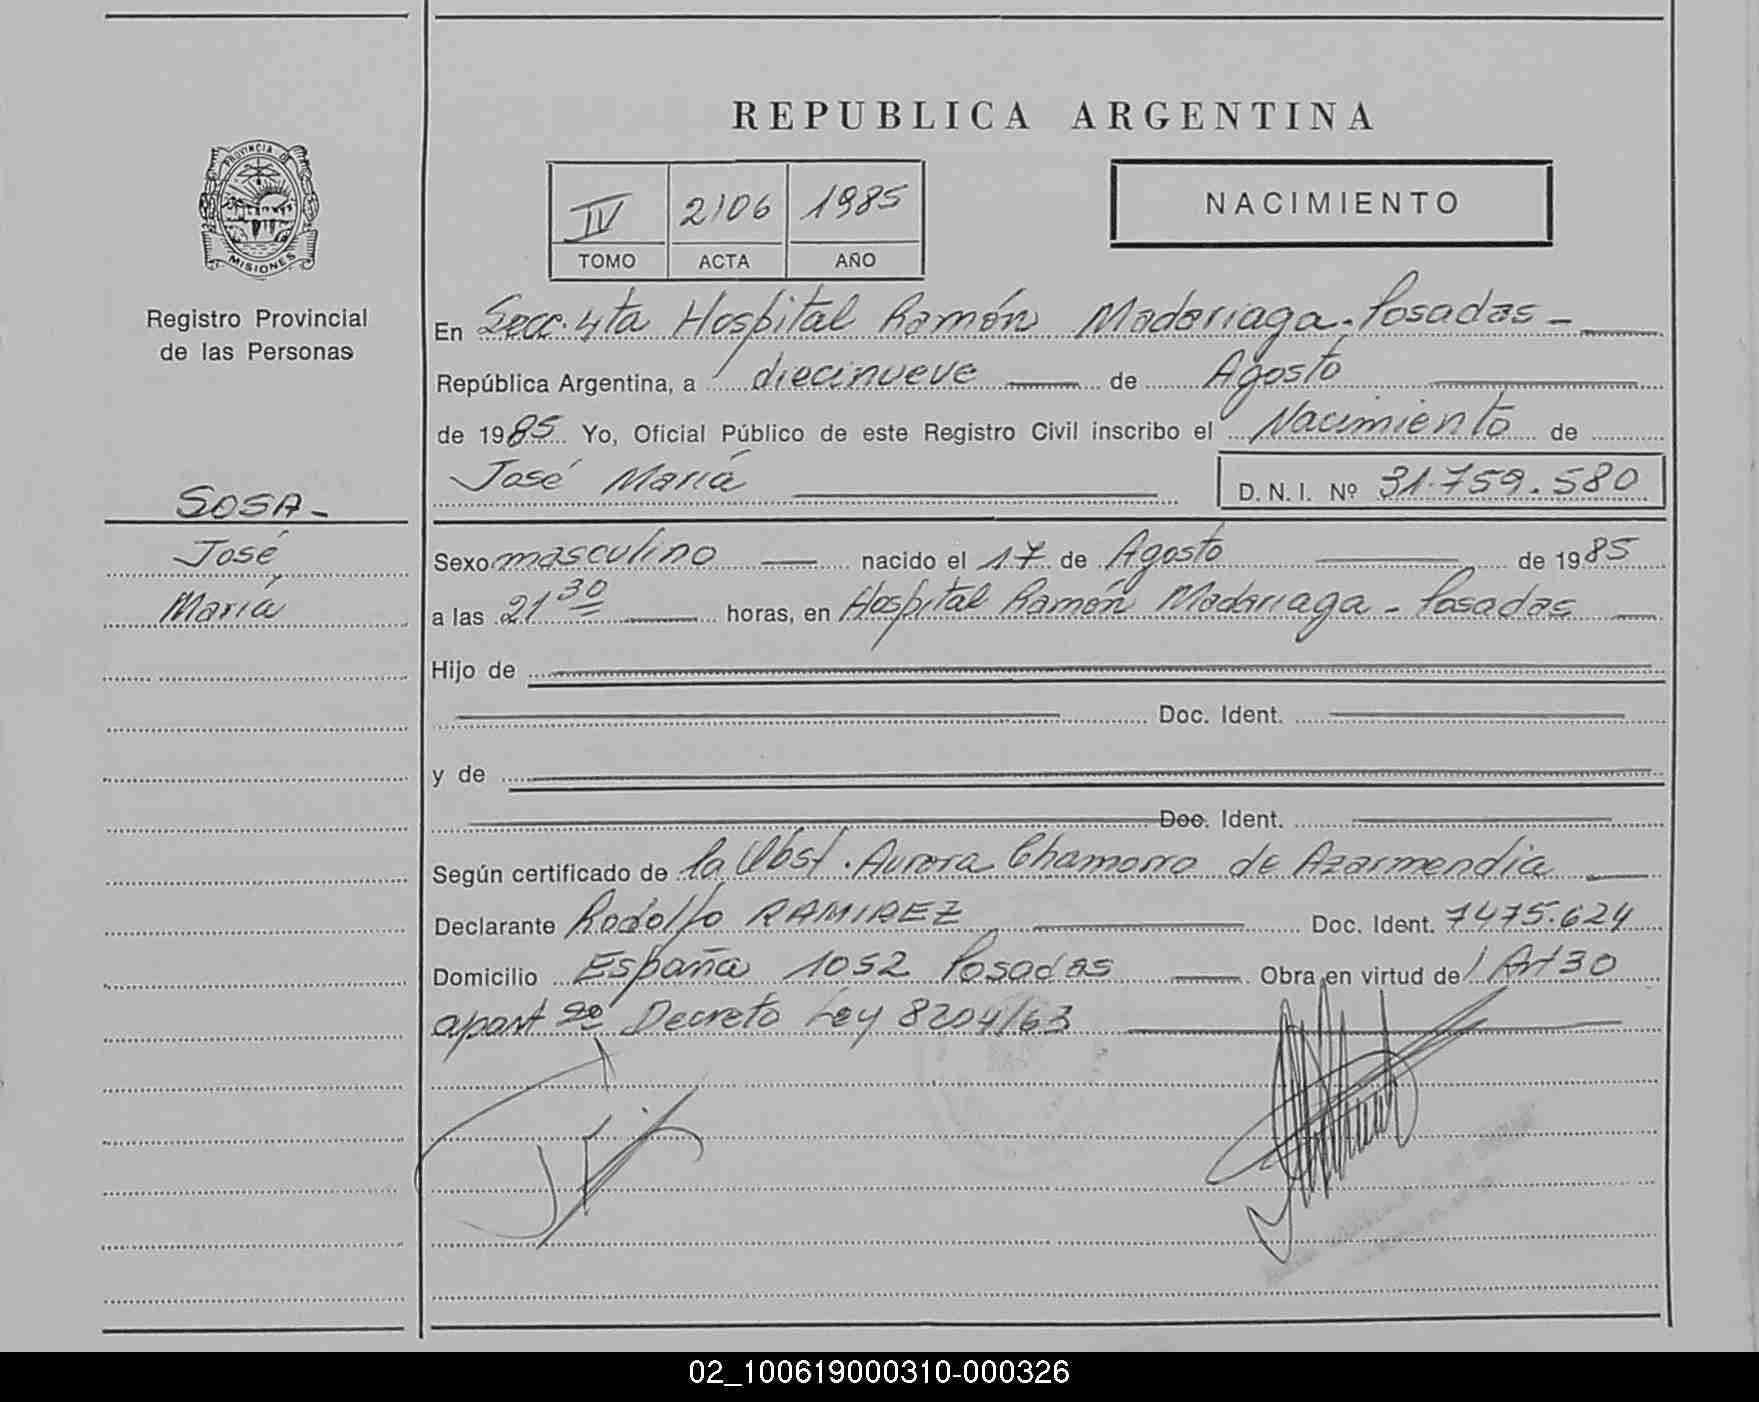 REPUBLICA ARGENTINA
PROVINCIA DE
MISIONES
Registro Provincial
de las Personas
SOSA -
José
María
IV 2106 1985
TOMO ACTA AÑO
NACIMIENTO
En Secc. 4ta Hospital Ramón Madariaga - Posadas -
República Argentina, a diecinueve de Agosto
de 1985 Yo, Oficial Público de este Registro Civil inscribo el Nacimiento de
José María D. N. I. Nº 31.759.580
Sexo masculino nacido el 17 de Agosto de 1985
a las 21 30 horas, en Hospital Ramón Madariaga - Posadas
Hijo de
Doc. Ident.
y de
Doc. Ident.
Según certificado de la Obst. Aurora Chamorro de Azarmendia
Declarante Rodolfo RAMIREZ Doc. Ident. 7475.624
Domicilio España 1052 Posadas Obra en virtud de Art 30
apart 2º Decreto Ley 8204/63
02_100619000310-000326